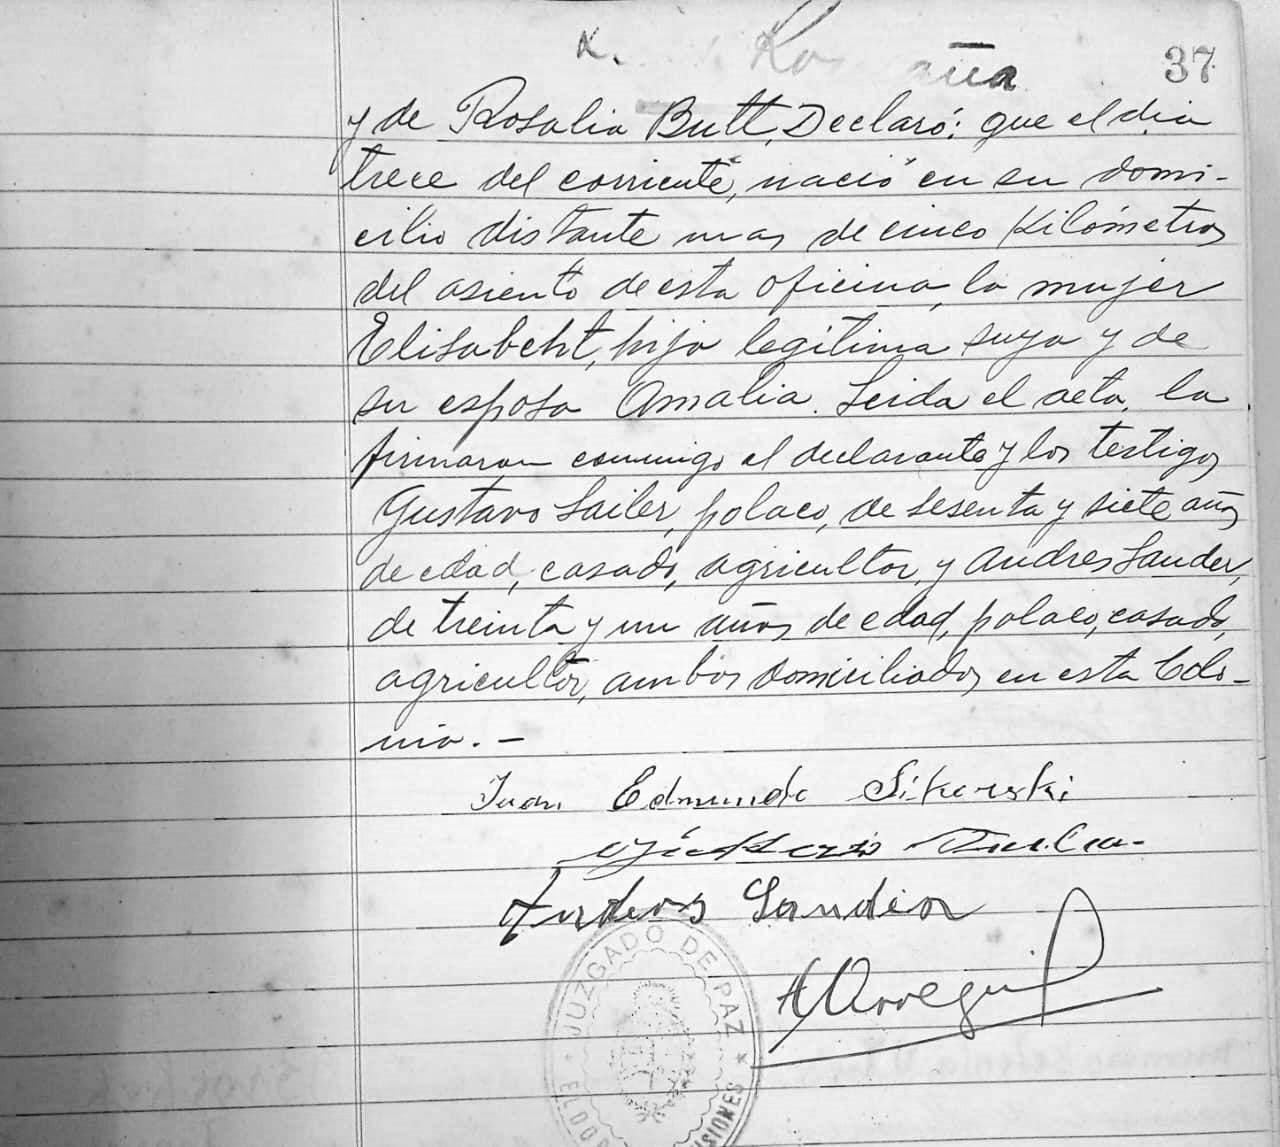 37
y de Rosalia Butt, Declaró: que el dia
trece del corriente, nació en su domi-
cilio distante mas de cinco Kilómetros
del asiento de esta oficina, la mujer
Elisabeht, hija legitima suya y de
su esposa Amalia. Leida el acta, la
firmaron conmigo el declarante y los testigos
Gustavo Sailer, polaco, de sesenta y siete años
de edad, casado, agricultor, y Andres Sander,
de treinta y un años de edad, polaco, casado,
agricultor, ambos domiciliados en esta Colo-
nia. -
Juan Edmundo Sikorski
JUZGADO DE PAZ